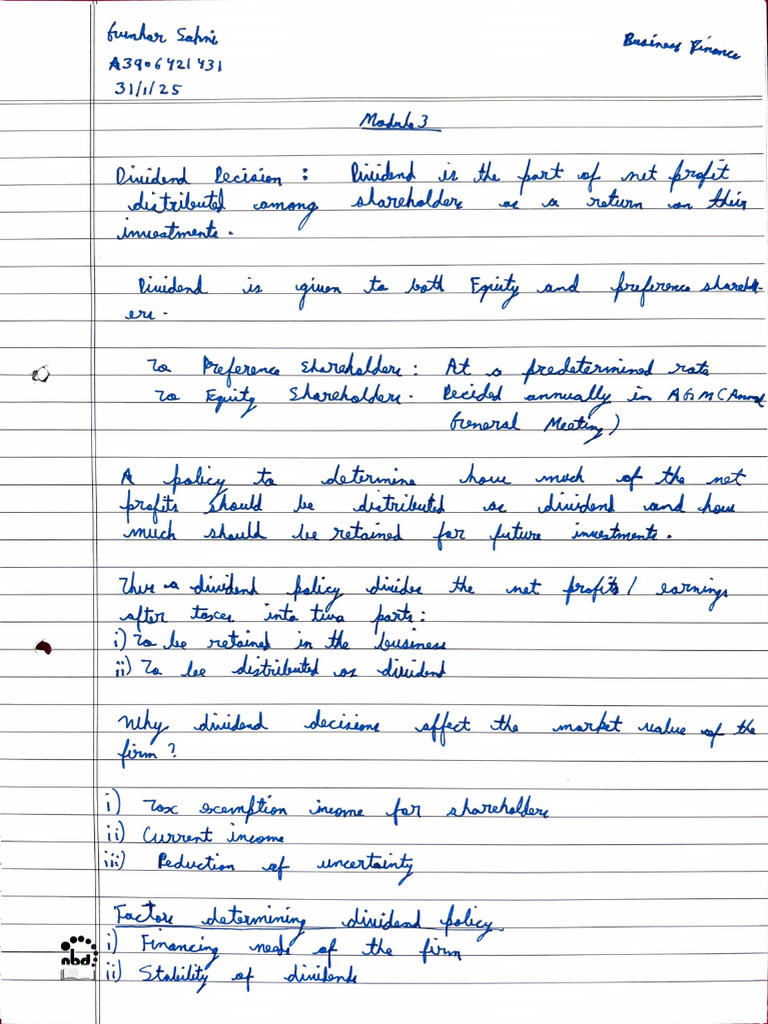 Gunhar Sahni
A3906421431
31/1/25
Business Finance
Module 3
Dividend Decision : Dividend is the part of net profit
distributed among shareholders as a return on their
investments.
Dividend is given to both Equity and preference sharehold-
ers.
To Preference Shareholders : At a predetermined rate
To Equity Shareholders. Decided annually in AGM (Annual
General Meeting)
A policy to determine how much of the net
profits should be distributed as dividend and how
much should be retained for future investments.
Thus a dividend policy divides the net profits / earnings
after taxes into two parts :
i) To be retained in the business
ii) To be distributed as dividend
Why dividend decisions affect the market value of the
firm ?
i) Tax exemption income for shareholders
ii) Current income
iii) Reduction of uncertainty
Factors determining dividend policy
i) Financing needs of the firm
ii) Stability of dividends
nbd